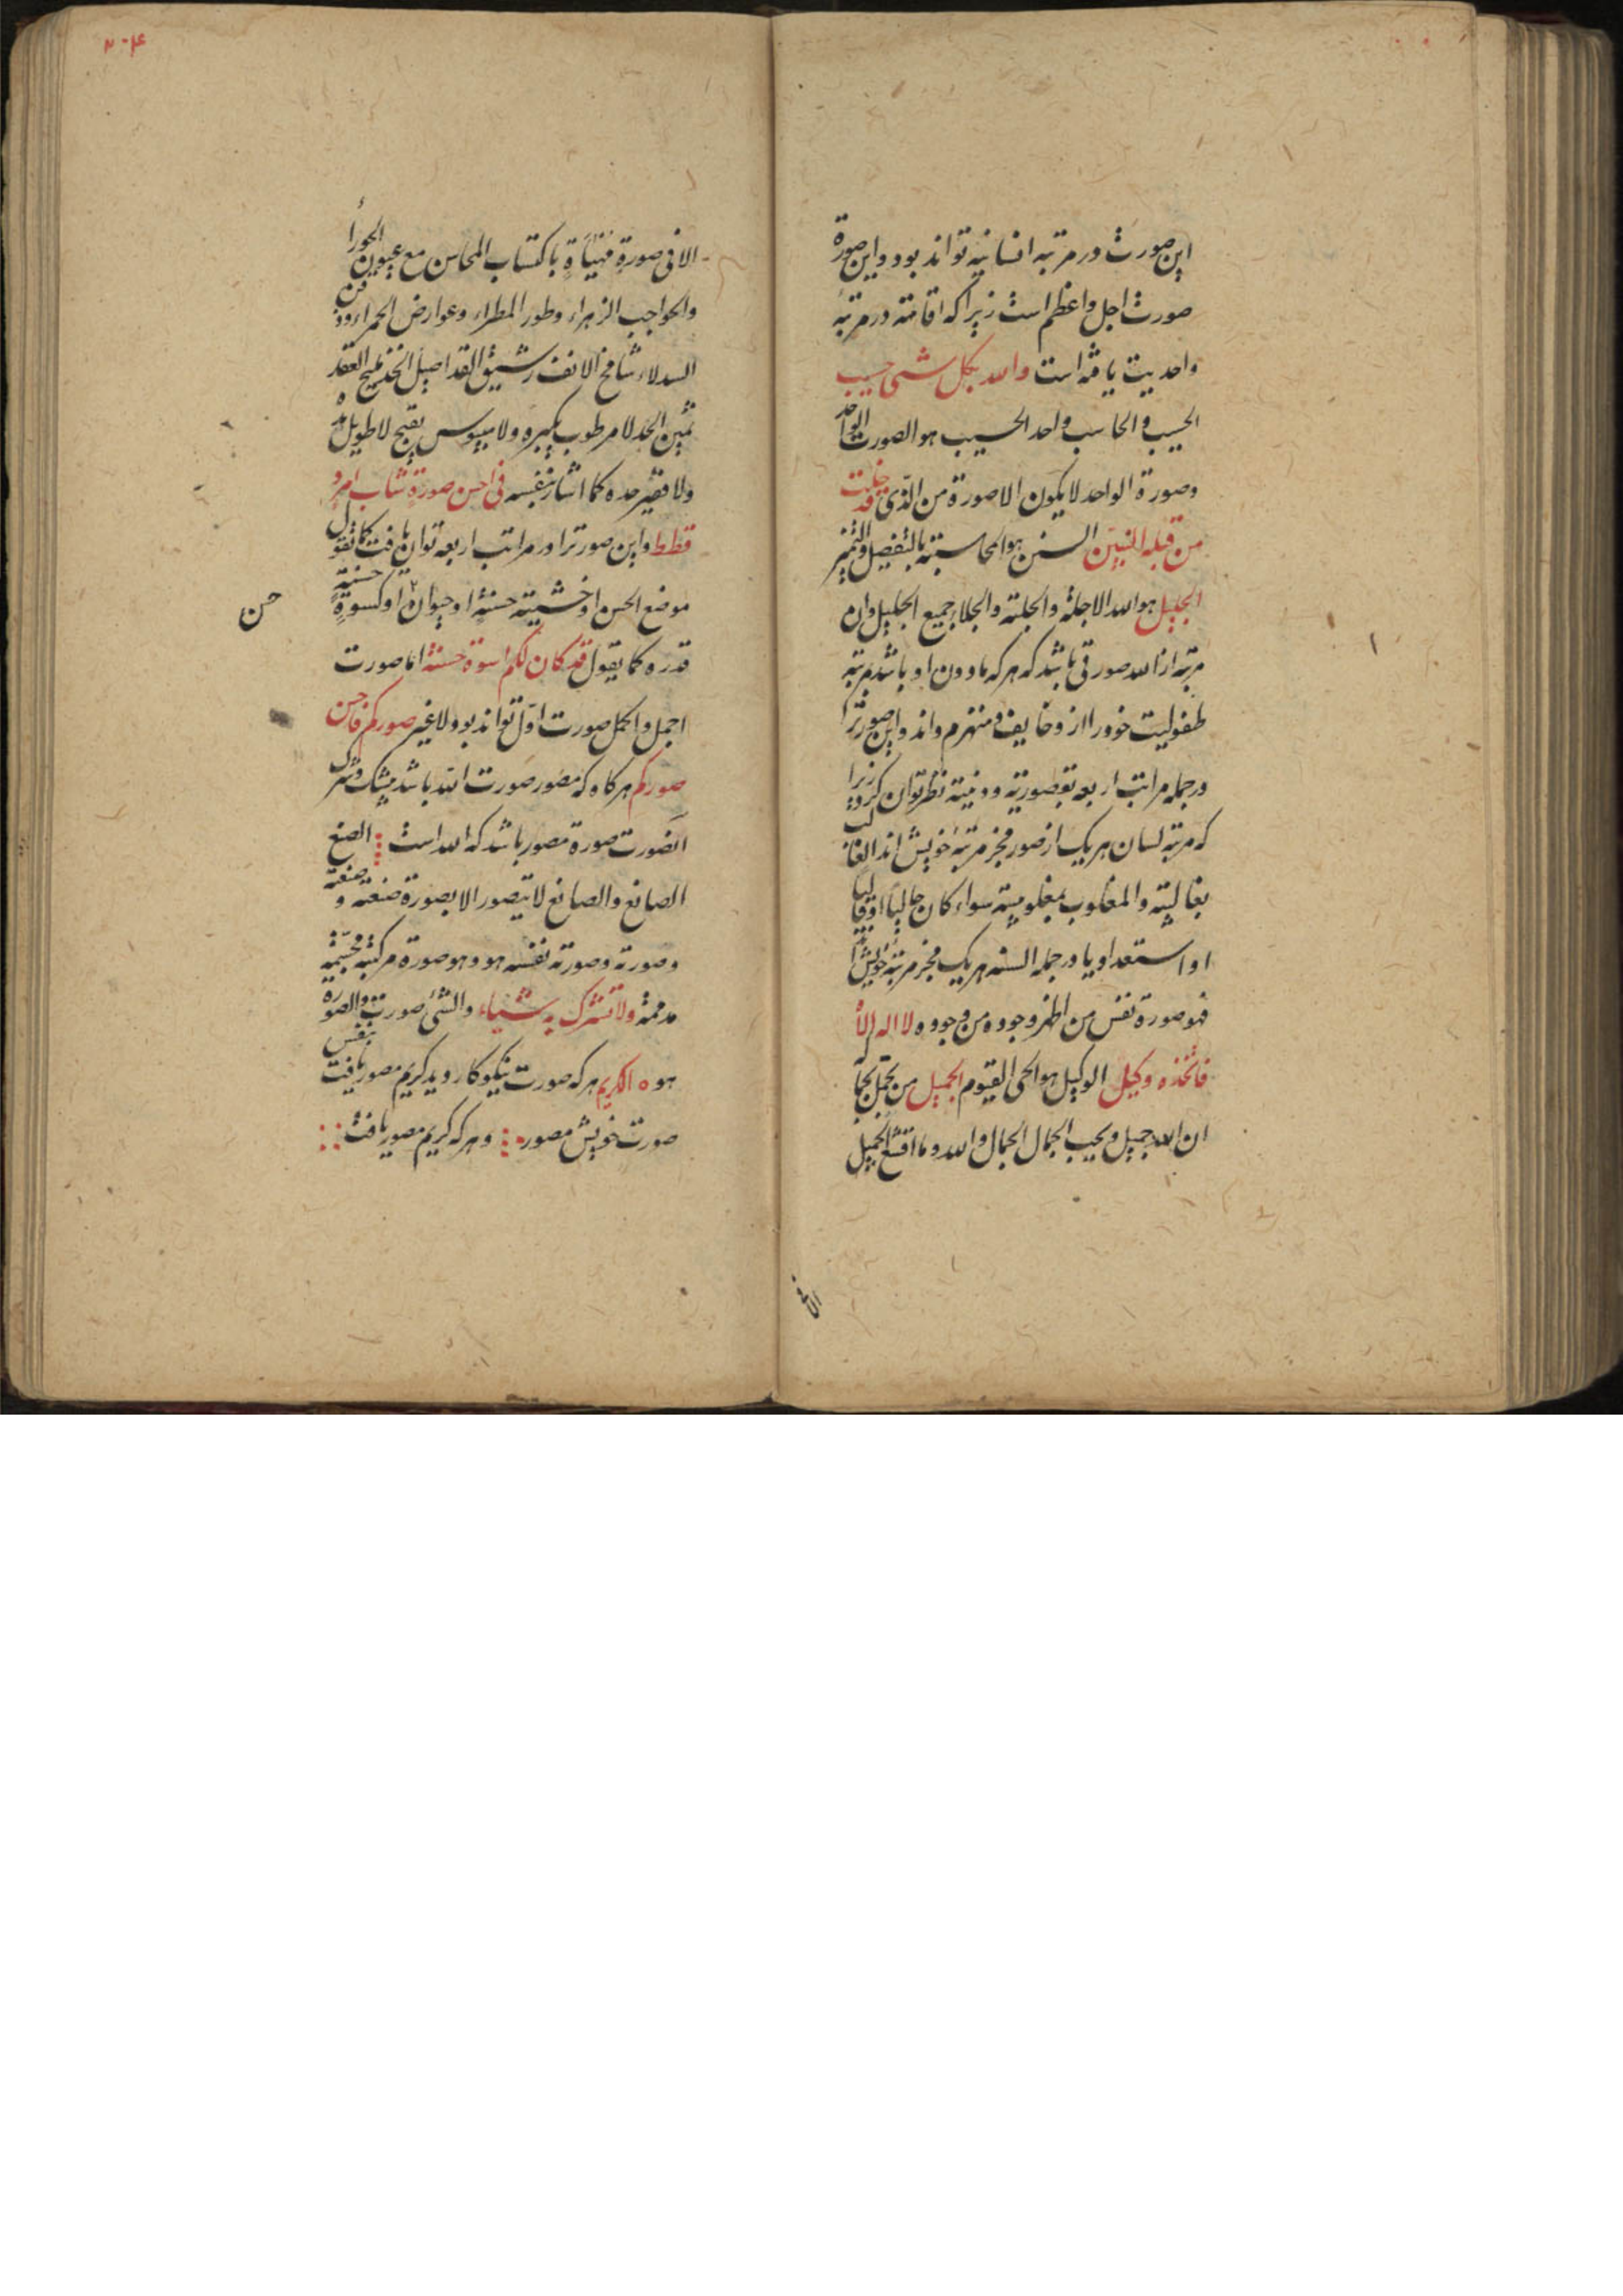 این صورت در مرتبه انسانیه تواند بود و این صورة
صورت اجل و اعظم است زیرا که اقامته در مرتبهٔ
واحدیت یافته است والله بکل شی حسیب
الحسیب و الحاسب واحد الحسیب هو الصورت الواحد
وصورة الواحد لایکون الا صورة من الذی قد خلت
من قبله النبیین السنن هو المحاسبته بالتفصیل والتمیز
الجلیل هو الله الاجلة والجلته والجلاء جمیع الجلیل وان
مرتبه از الله صورتی باشد که هر که مادون او باشد مرتبه
طفولیت خود را از و خایف و منهزم داند و این صورترا
در جمله مراتب اربعه بصورته نظر توان کرد زیرا
که مرتبه لسان هر یک از صور مخبر مرتبهٔ خویش اند الغالب
بغالبیته والمغلوب بمغلوبیته سواء کان حالیا او قالیا
او استعدادیا در جمله السنه هر یک مخبر مرتبهٔ خویش
فهو صورة نفس من اظهر وجوده من وجوده لا اله الا
فاتخذه وکیل الوکیل هو الحی القیوم الجمیل من تجمل
ان الله جمیل و یحب الجمال الجمال والله و ما الجمیل
الا فی صورة مهیأة باکتساب المحاسن مع عیون الحوراء
والحواجب الزهراء وطور المطراء وعوارض الحمراء
السدلاء شامخ الانف رشیق القد اصیل الخد ملیح العقد
ثمین الجد لا مرطوب یکبره ولا میبوس یقبح لا طویل
ولا قصیر حده کما اشار بنفسه فی احسن صورة شاب امرد
قطط و این صورترا در مراتب اربعه توان یافت کما تقول
موضع الحسن او خشیته حسنة او حیوان او کسوة حسنة
حسن
قدره کما یقول قد کان لکم اسوة حسنة اما صورت
اجمل و اکمل صورت اول تواند بود ولا غیر صورکم فاحسن
صورکم هرکاه که مصور صورت الله باشد بیشک
الصورت صورة مصور باشد که الله است الصنع
الصانع والصانع لا یتصور الا بصورة صنعته و صنعته
وصورته وصورته نفسه هو و هو صورة مرکبه مجسمه
مدغمة ولا تشرک به شیاء والشی صورت والصورة بنفس
هو ه الکریم هر که صورت نیکوکار دید کریم مصور یافت
صورت خویش مصور و هر که کریم مصور یافت